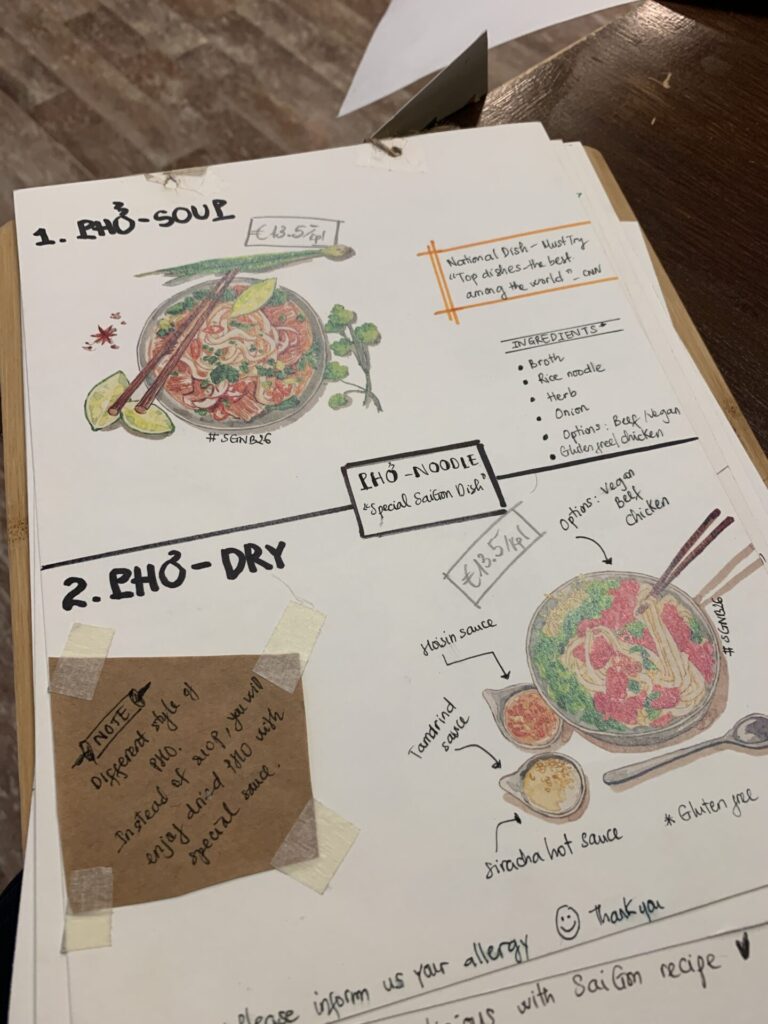 1. PHỞ-SOUP
€13.5/kpl
National Dish - Must Try
"Top dishes-the best
among the world" - CNN
#SGNB26
INGREDIENTS*
• Broth
• Rice noodle
• Herb
• Onion
• Options: Beef/Vegan
• Gluten free/chicken
PHỞ-NOODLE
"Special SaiGon Dish"
2. PHỞ-DRY
€13.5/kpl
Options: Vegan
Beef
chicken
#SGNB26
Hoisin sauce
Tamdrind
sauce
Siracha hot sauce
* Gluten free
NOTE
Different style of
PHO.
Instead of soup, you will
enjoy dried PHO with
special sauce.
Please inform us your allergy ☺ Thank you
with SaiGon recipe ♥